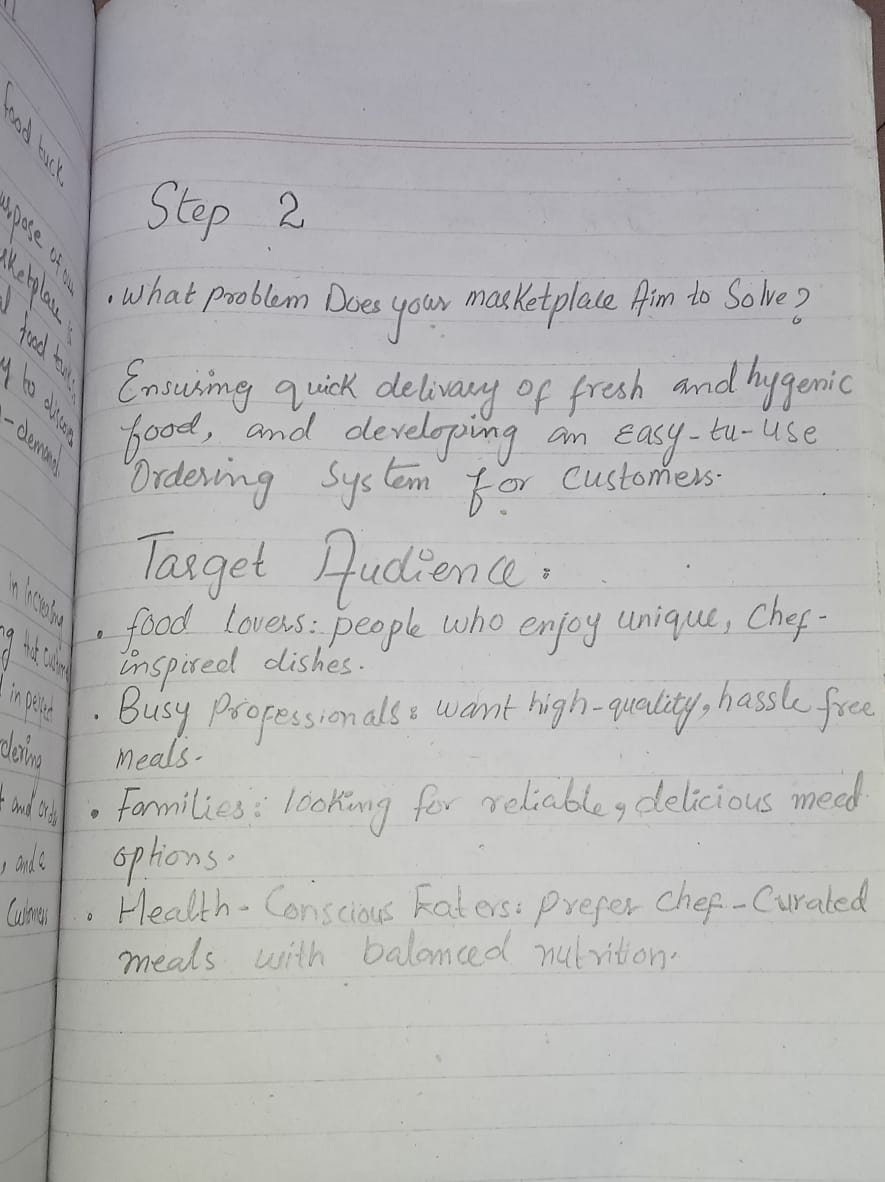 food tuck
of our
food
to discover
-demand
in Increasing
that
in
and
, and a
Customers
Step 2
. What Problem Does your marketplace Aim to Solve?
Ensuring quick delivary of fresh and hygenic
food, and developing an Easy-tu-Use
Ordering System for Customers.
Target Audience :
. food lovers: people who enjoy unique, Chef-
inspired dishes.
. Busy Professionals: want high-quality, hassle free
meals.
. Families: looking for reliable, delicious meal
options.
. Health-Conscious Eaters: prefer Chef-Curated
meals with balanced nutrition.